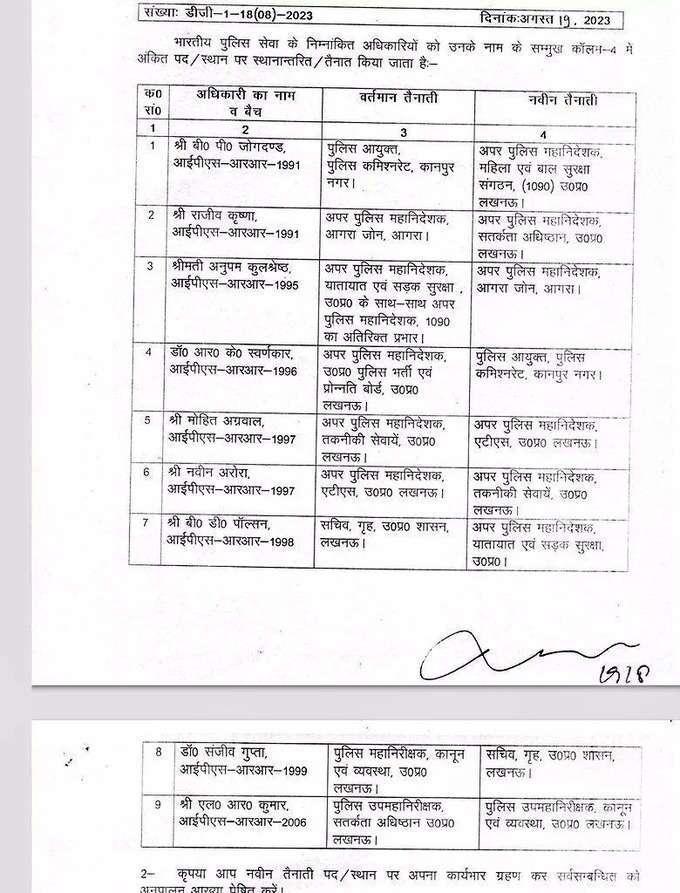 संख्याः डीजी–1–18(08)–2023
दिनांकःअगस्त 19, 2023
भारतीय पुलिस सेवा के निम्नांकित अधिकारियों को उनके नाम के सम्मुख कॉलम–4 में
अंकित पद/स्थान पर स्थानान्तरित/तैनात किया जाता हैः–
क0
सं0
अधिकारी का नाम
व बैच
वर्तमान तैनाती
नवीन तैनाती
1
2
3
4
1
श्री बी0 पी0 जोगदण्ड,
आईपीएस–आरआर–1991
पुलिस आयुक्त,
पुलिस कमिश्नरेट, कानपुर
नगर।
अपर पुलिस महानिदेशक,
महिला एवं बाल सुरक्षा
संगठन, (1090) उ0प्र0
लखनऊ।
2
श्री राजीव कृष्णा,
आईपीएस–आरआर–1991
अपर पुलिस महानिदेशक,
आगरा जोन, आगरा।
अपर पुलिस महानिदेशक,
सतर्कता अधिष्ठान, उ0प्र0
लखनऊ।
3
श्रीमती अनुपम कुलश्रेष्ठ,
आईपीएस–आरआर–1995
अपर पुलिस महानिदेशक,
यातायात एवं सड़क सुरक्षा ,
उ0प्र0 के साथ–साथ अपर
पुलिस महानिदेशक, 1090
का अतिरिक्त प्रभार।
अपर पुलिस महानिदेशक,
आगरा जोन, आगरा।
4
डॉ0 आर0 के0 स्वर्णकार,
आईपीएस–आरआर–1996
अपर पुलिस महानिदेशक,
उ0प्र0 पुलिस भर्ती एवं
प्रोन्नति बोर्ड, उ0प्र0
लखनऊ।
पुलिस आयुक्त, पुलिस
कमिश्नरेट, कानपुर नगर।
5
श्री मोहित अग्रवाल,
आईपीएस–आरआर–1997
अपर पुलिस महानिदेशक,
तकनीकी सेवायें, उ0प्र0
लखनऊ।
अपर पुलिस महानिदेशक,
एटीएस, उ0प्र0 लखनऊ।
6
श्री नवीन अरोरा,
आईपीएस–आरआर–1997
अपर पुलिस महानिदेशक,
एटीएस, उ0प्र0 लखनऊ।
अपर पुलिस महानिदेशक,
तकनीकी सेवायें, उ0प्र0
लखनऊ।
7
श्री बी0 डी0 पॉल्सन,
आईपीएस–आरआर–1998
सचिव, गृह, उ0प्र0 शासन,
लखनऊ।
अपर पुलिस महानिदेशक,
यातायात एवं सड़क सुरक्षा,
उ0प्र0।
8
डॉ0 संजीव गुप्ता,
आईपीएस–आरआर–1999
पुलिस महानिरीक्षक, कानून
एवं व्यवस्था, उ0प्र0
लखनऊ।
सचिव, गृह, उ0प्र0 शासन,
लखनऊ।
9
श्री एल0 आर0 कुमार,
आईपीएस–आरआर–2006
पुलिस उपमहानिरीक्षक,
सतर्कता अधिष्ठान उ0प्र0
लखनऊ।
पुलिस उपमहानिरीक्षक, कानून
एवं व्यवस्था, उ0प्र0 लखनऊ।
2– कृपया आप नवीन तैनाती पद/स्थान पर अपना कार्यभार ग्रहण कर सर्वसम्बन्धित को
अनुपालन आख्या प्रेषित करें।